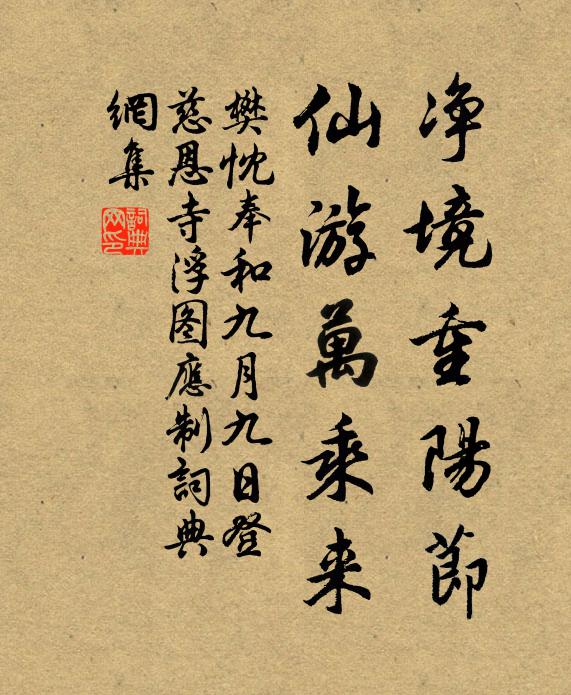 净境重陽節
仙游萬乘来
樊忱奉和九月九日登
慈恩寺浮图應制詞典
網集
詞典
网印